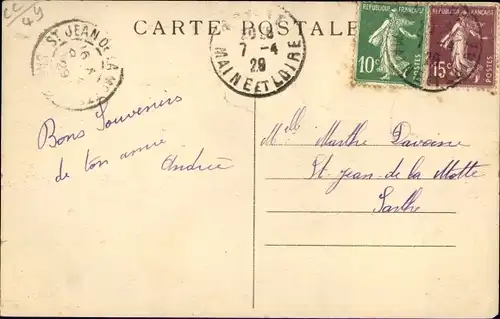 CC
49
CARTE POSTALE
ST JEAN DE LA MOTTE
7-4
29
MAINE ET LOIRE
REPUBLIQUE FRANCAISE
10c
POSTES
REPUBLIQUE FRANCAISE
15c
POSTES
Bons Souvenirs
de ton amie
Andrée
Mlle Marthe Davoine
St jean de la Motte
Sarthe